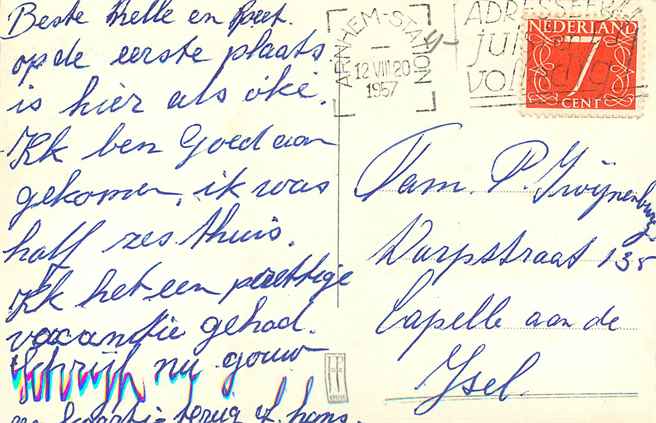 Beste Nelle en Peet.
op de eerste plaats
is hier als oké.
Ik ben Goed aan
gekomen, ik was
half zes thuis.
Ik het een prettige
vacantie gehad.
Schrijf nu gouw
kaartje terug hans.
ARNHEM-STATION
12 VIII 20
1957
ADRESSEER
juist
volledig
NEDERLAND
7
CENT
Fam. P.
Warpstraat 135
Capelle aan de
Ysel.